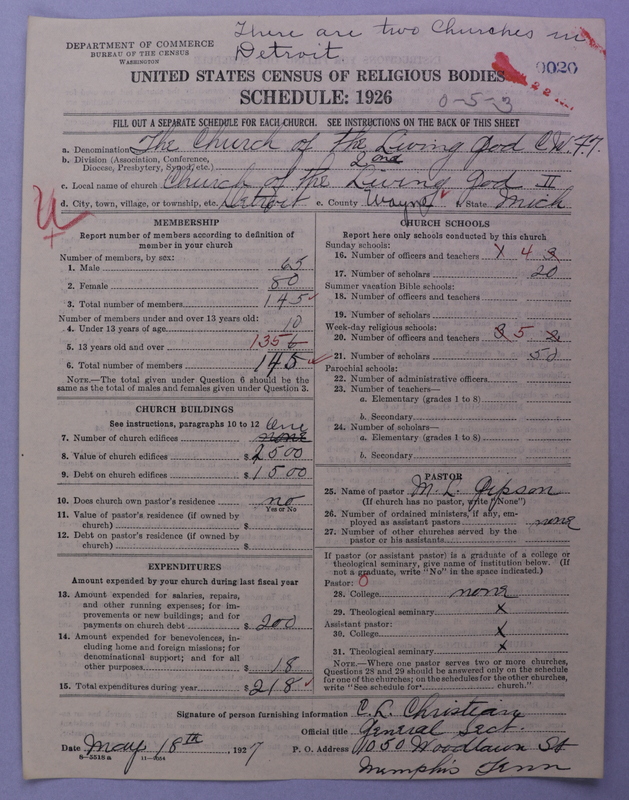 There are two Churches in
Detroit
DEPARTMENT OF COMMERCE
BUREAU OF THE CENSUS
WASHINGTON
0020
UNITED STATES CENSUS OF RELIGIOUS BODIES
SCHEDULE: 1926
0-5-3
FILL OUT A SEPARATE SCHEDULE FOR EACH CHURCH. SEE INSTRUCTIONS ON THE BACK OF THIS SHEET
a. Denomination The Church of the Living God C.W.F.F.
b. Division (Association, Conference, Diocese, Presbytery, Synod, etc.) 2nd
c. Local name of church Church of the Living God II
d. City, town, village, or township, etc. Detroit e. County Wayne f. State Mich
MEMBERSHIP
Report number of members according to definition of
member in your church
Number of members, by sex:
1. Male 65
2. Female 80
3. Total number of members 145
Number of members under and over 13 years old:
4. Under 13 years of age 10
5. 13 years old and over 135
6. Total number of members 145
NOTE.—The total given under Question 6 should be the
same as the total of males and females given under Question 3.
CHURCH BUILDINGS
See instructions, paragraphs 10 to 12
One
7. Number of church edifices none
8. Value of church edifices $ 2500
9. Debt on church edifices $ 1500
10. Does church own pastor's residence no
Yes or No
11. Value of pastor's residence (if owned by
church) $
12. Debt on pastor's residence (if owned by
church) $
EXPENDITURES
Amount expended by your church during last fiscal year
13. Amount expended for salaries, repairs,
and other running expenses; for im-
provements or new buildings; and for
payments on church debt $ 200
14. Amount expended for benevolences, in-
cluding home and foreign missions; for
denominational support; and for all
other purposes $ 18
15. Total expenditures during year $ 218
CHURCH SCHOOLS
Report here only schools conducted by this church
Sunday schools:
16. Number of officers and teachers 4
17. Number of scholars 20
Summer vacation Bible schools:
18. Number of officers and teachers
19. Number of scholars
Week-day religious schools:
20. Number of officers and teachers 5
21. Number of scholars 50
Parochial schools:
22. Number of administrative officers
23. Number of teachers—
a. Elementary (grades 1 to 8)
b. Secondary
24. Number of scholars—
a. Elementary (grades 1 to 8)
b. Secondary
PASTOR
25. Name of pastor M. L. Gipson
(If church has no pastor, write "None")
26. Number of ordained ministers, if any, em-
ployed as assistant pastors none
27. Number of other churches served by the
pastor or his assistants
If pastor (or assistant pastor) is a graduate of a college or
theological seminary, give name of institution below. (If
not a graduate, write "No" in the space indicated.)
Pastor: 0
28. College none
29. Theological seminary x
Assistant pastor:
30. College x
31. Theological seminary x
NOTE.—Where one pastor serves two or more churches,
Questions 28 and 29 should be answered only on the schedule
for one of the churches; on the schedules for the other churches,
write "See schedule for church."
Signature of person furnishing information C. L. Christian
Official title General Sect.
Date May 18th, 1927 P. O. Address 1050 Woodlawn St
8-5518a 11-9054
Memphis Tenn